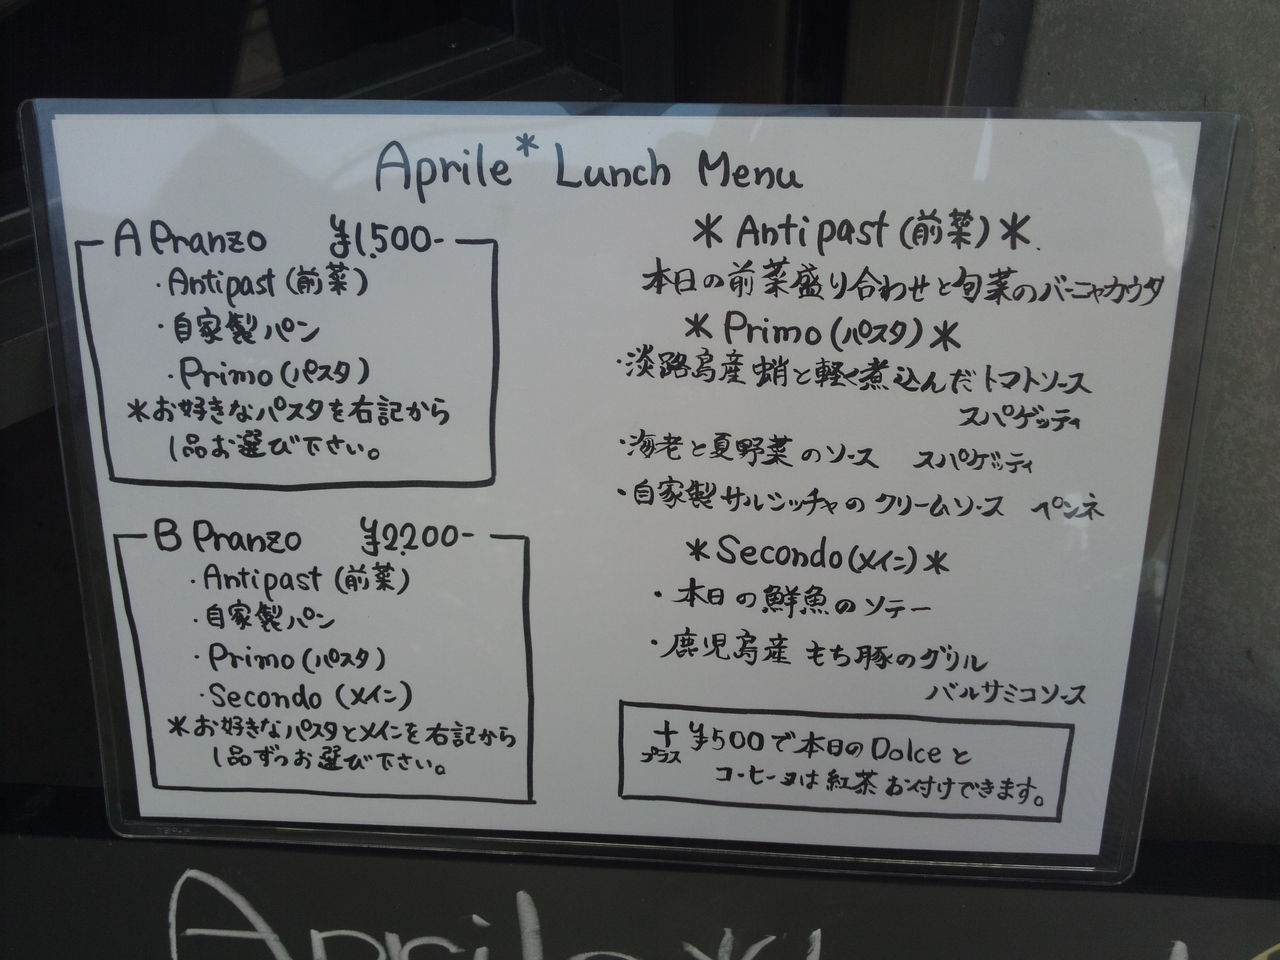 Aprile* Lunch Menu
A Pranzo ¥1,500-
・Antipast (前菜)
・自家製パン
・Primo (パスタ)
*お好きなパスタを右記から
1品お選び下さい。
B Pranzo ¥2,200-
・Antipast (前菜)
・自家製パン
・Primo (パスタ)
・Secondo (メイン)
*お好きなパスタとメインを右記から
1品ずつお選び下さい。
* Antipast (前菜) *
本日の前菜盛り合わせと旬菜のバーニャカウダ
* Primo (パスタ) *
・淡路島産 蛸と軽く煮込んだ トマトソース
スパゲッティ
・海老と夏野菜のソース スパゲッティ
・自家製サルシッチャの クリームソース ペンネ
* Secondo (メイン) *
・本日の鮮魚のソテー
・鹿児島産 もち豚のグリル
バルサミコソース
+ ¥500で本日のDolceと
プラス
コーヒー又は紅茶お付けできます。
Aprile*